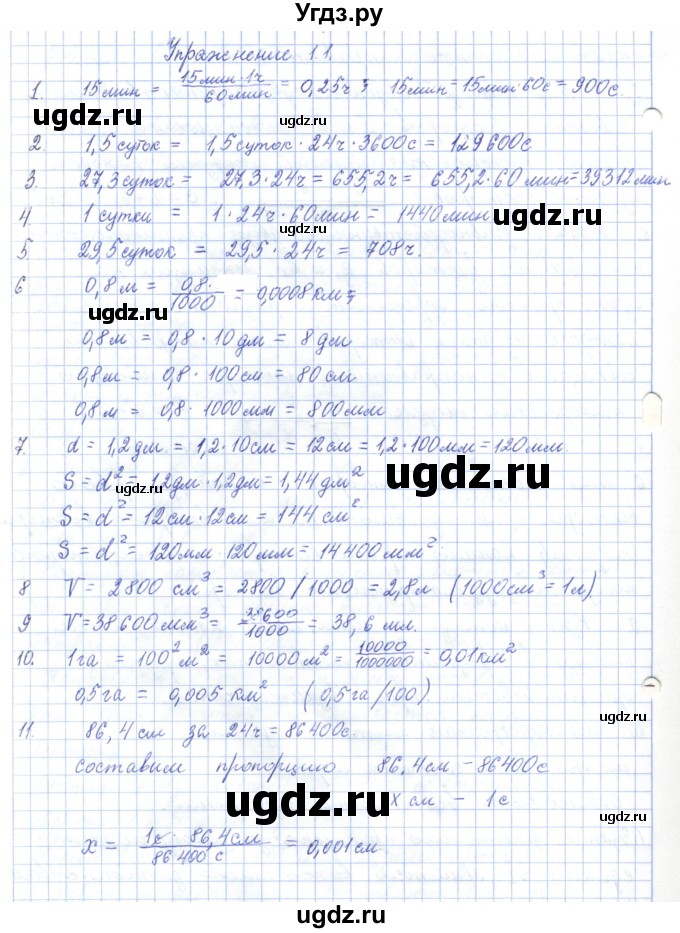 Угдз.ру
Упражнение 1.1.
1. 15мин = 15мин·1ч/60мин = 0,25ч; 15мин = 15мин·60с = 900с.
ugdz.ru
ugdz.ru
2. 1,5суток = 1,5суток·24ч·3600с = 129600с
3. 27,3суток = 27,3·24ч = 655,2ч = 655,2·60мин = 39312мин
4 1 сутки = 1·24ч·60мин = 1440мин
ugdz.ru
5 29,5суток = 29,5·24ч = 708ч.
6 0,8м = 0,8·/1000 = 0,0008км;
ugdz.ru
0,8м = 0,8·10дм = 8дм
0,8м = 0,8·100см = 80см
0,8м = 0,8·1000мм = 800мм
7. d = 1,2дм = 1,2·10см = 12см = 1,2·100мм = 120мм.
S = d² = 1,2дм·1,2дм = 1,44дм²
ugdz.ru
ugdz.ru
S = d² = 12см·12см = 144см²
S = d² = 120мм·120мм = 14400мм²
8 V = 2800 см³ = 2800/1000 = 2,8л (1000см³ = 1л)
9 V = 38600мм³ = 38600/1000 = 38,6 мл.
10. 1га = 100²м² = 10000м² = 10000/1000000 = 0,01км²
0,5га = 0,005км² (0,5га/100)
11. 86,4см за 24ч = 86400с
ugdz.ru
составим пропорцию 86,4см – 86400с
ugdz.ru
x см – 1с
x = 1с·86,4см/86400с = 0,001см
ugdz.ru
ugdz.ru